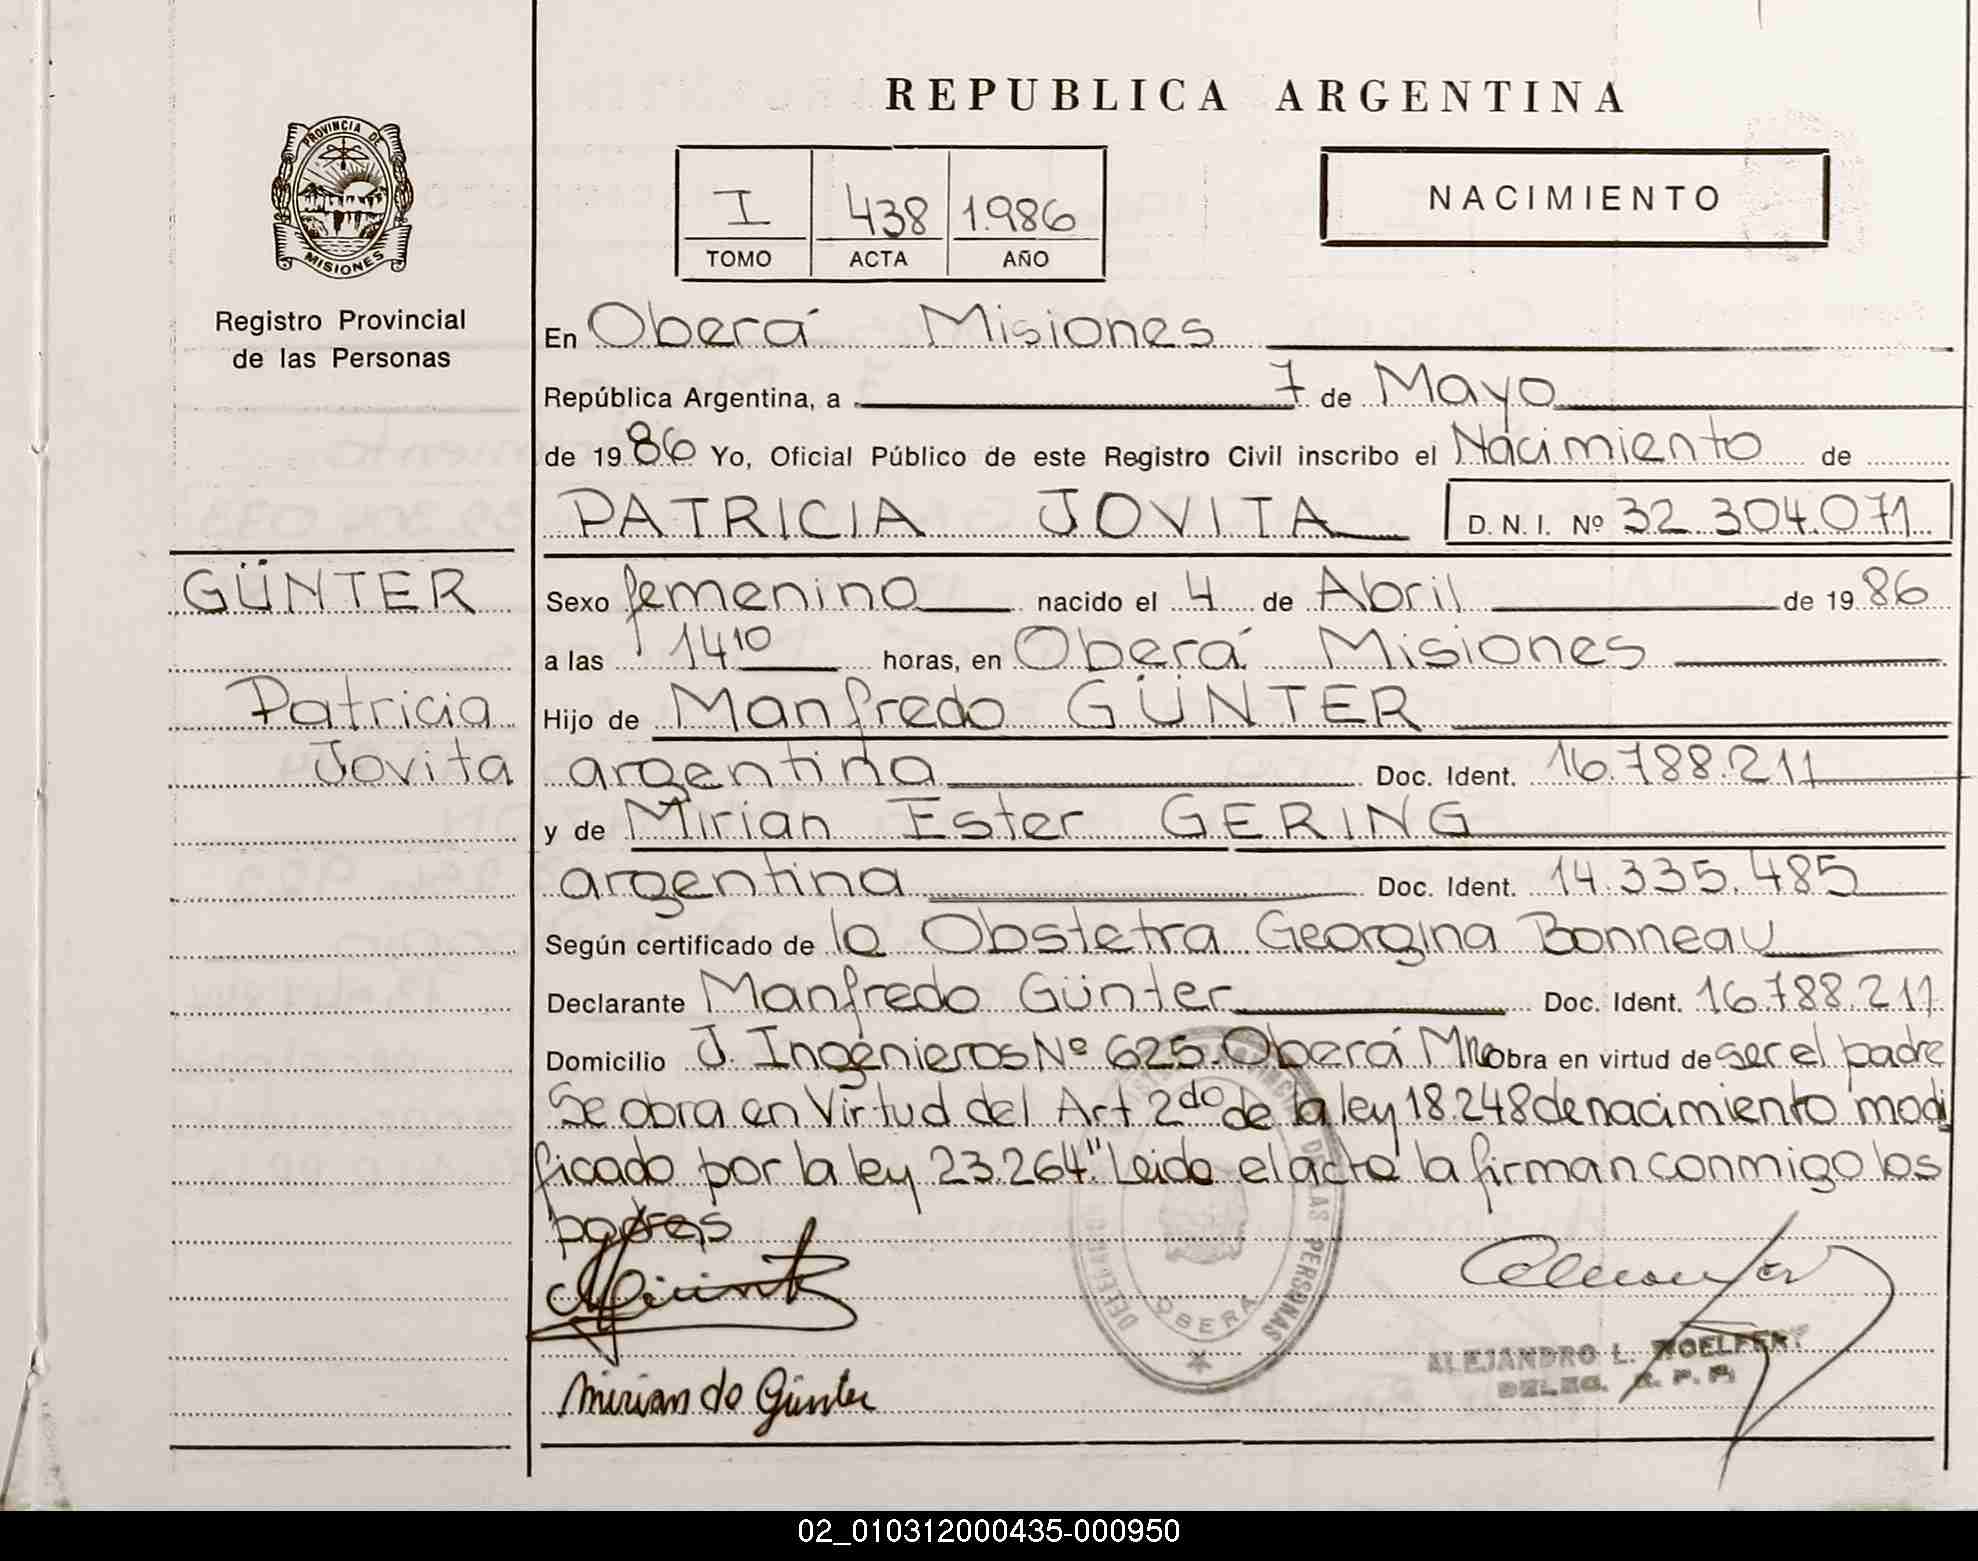 REPUBLICA ARGENTINA
PROVINCIA DE
MISIONES
Registro Provincial
de las Personas
I 438 1.986
TOMO ACTA AÑO
NACIMIENTO
En Oberá Misiones
República Argentina, a 7 de Mayo
de 1986 Yo, Oficial Público de este Registro Civil inscribo el Nacimiento de
PATRICIA JOVITA D. N. I. Nº 32.304.071
GÜNTER
Patricia
Jovita
Sexo femenino nacido el 4 de Abril de 1986
a las 14 10 horas, en Oberá Misiones
Hijo de Manfredo GÜNTER
argentina Doc. Ident. 16.788.211
y de Mirian Ester GERING
argentina Doc. Ident. 14.335.485
Según certificado de la Obstetra Georgina Bonneau
Declarante Manfredo Günter Doc. Ident. 16.788.211
Domicilio J. Ingenieros Nº 625. Oberá Mnes obra en virtud de ser el padre
Se obra en Virtud del Art 2do de la ley 18.248 de nacimiento modi
ficado por la ley 23.264." Leida el acta la firman conmigo los
padres
DE LAS PERSONAS
OBERA
Mirian de Günter
ALEJANDRO L.
DELEG. R. P. P.
02_010312000435-000950